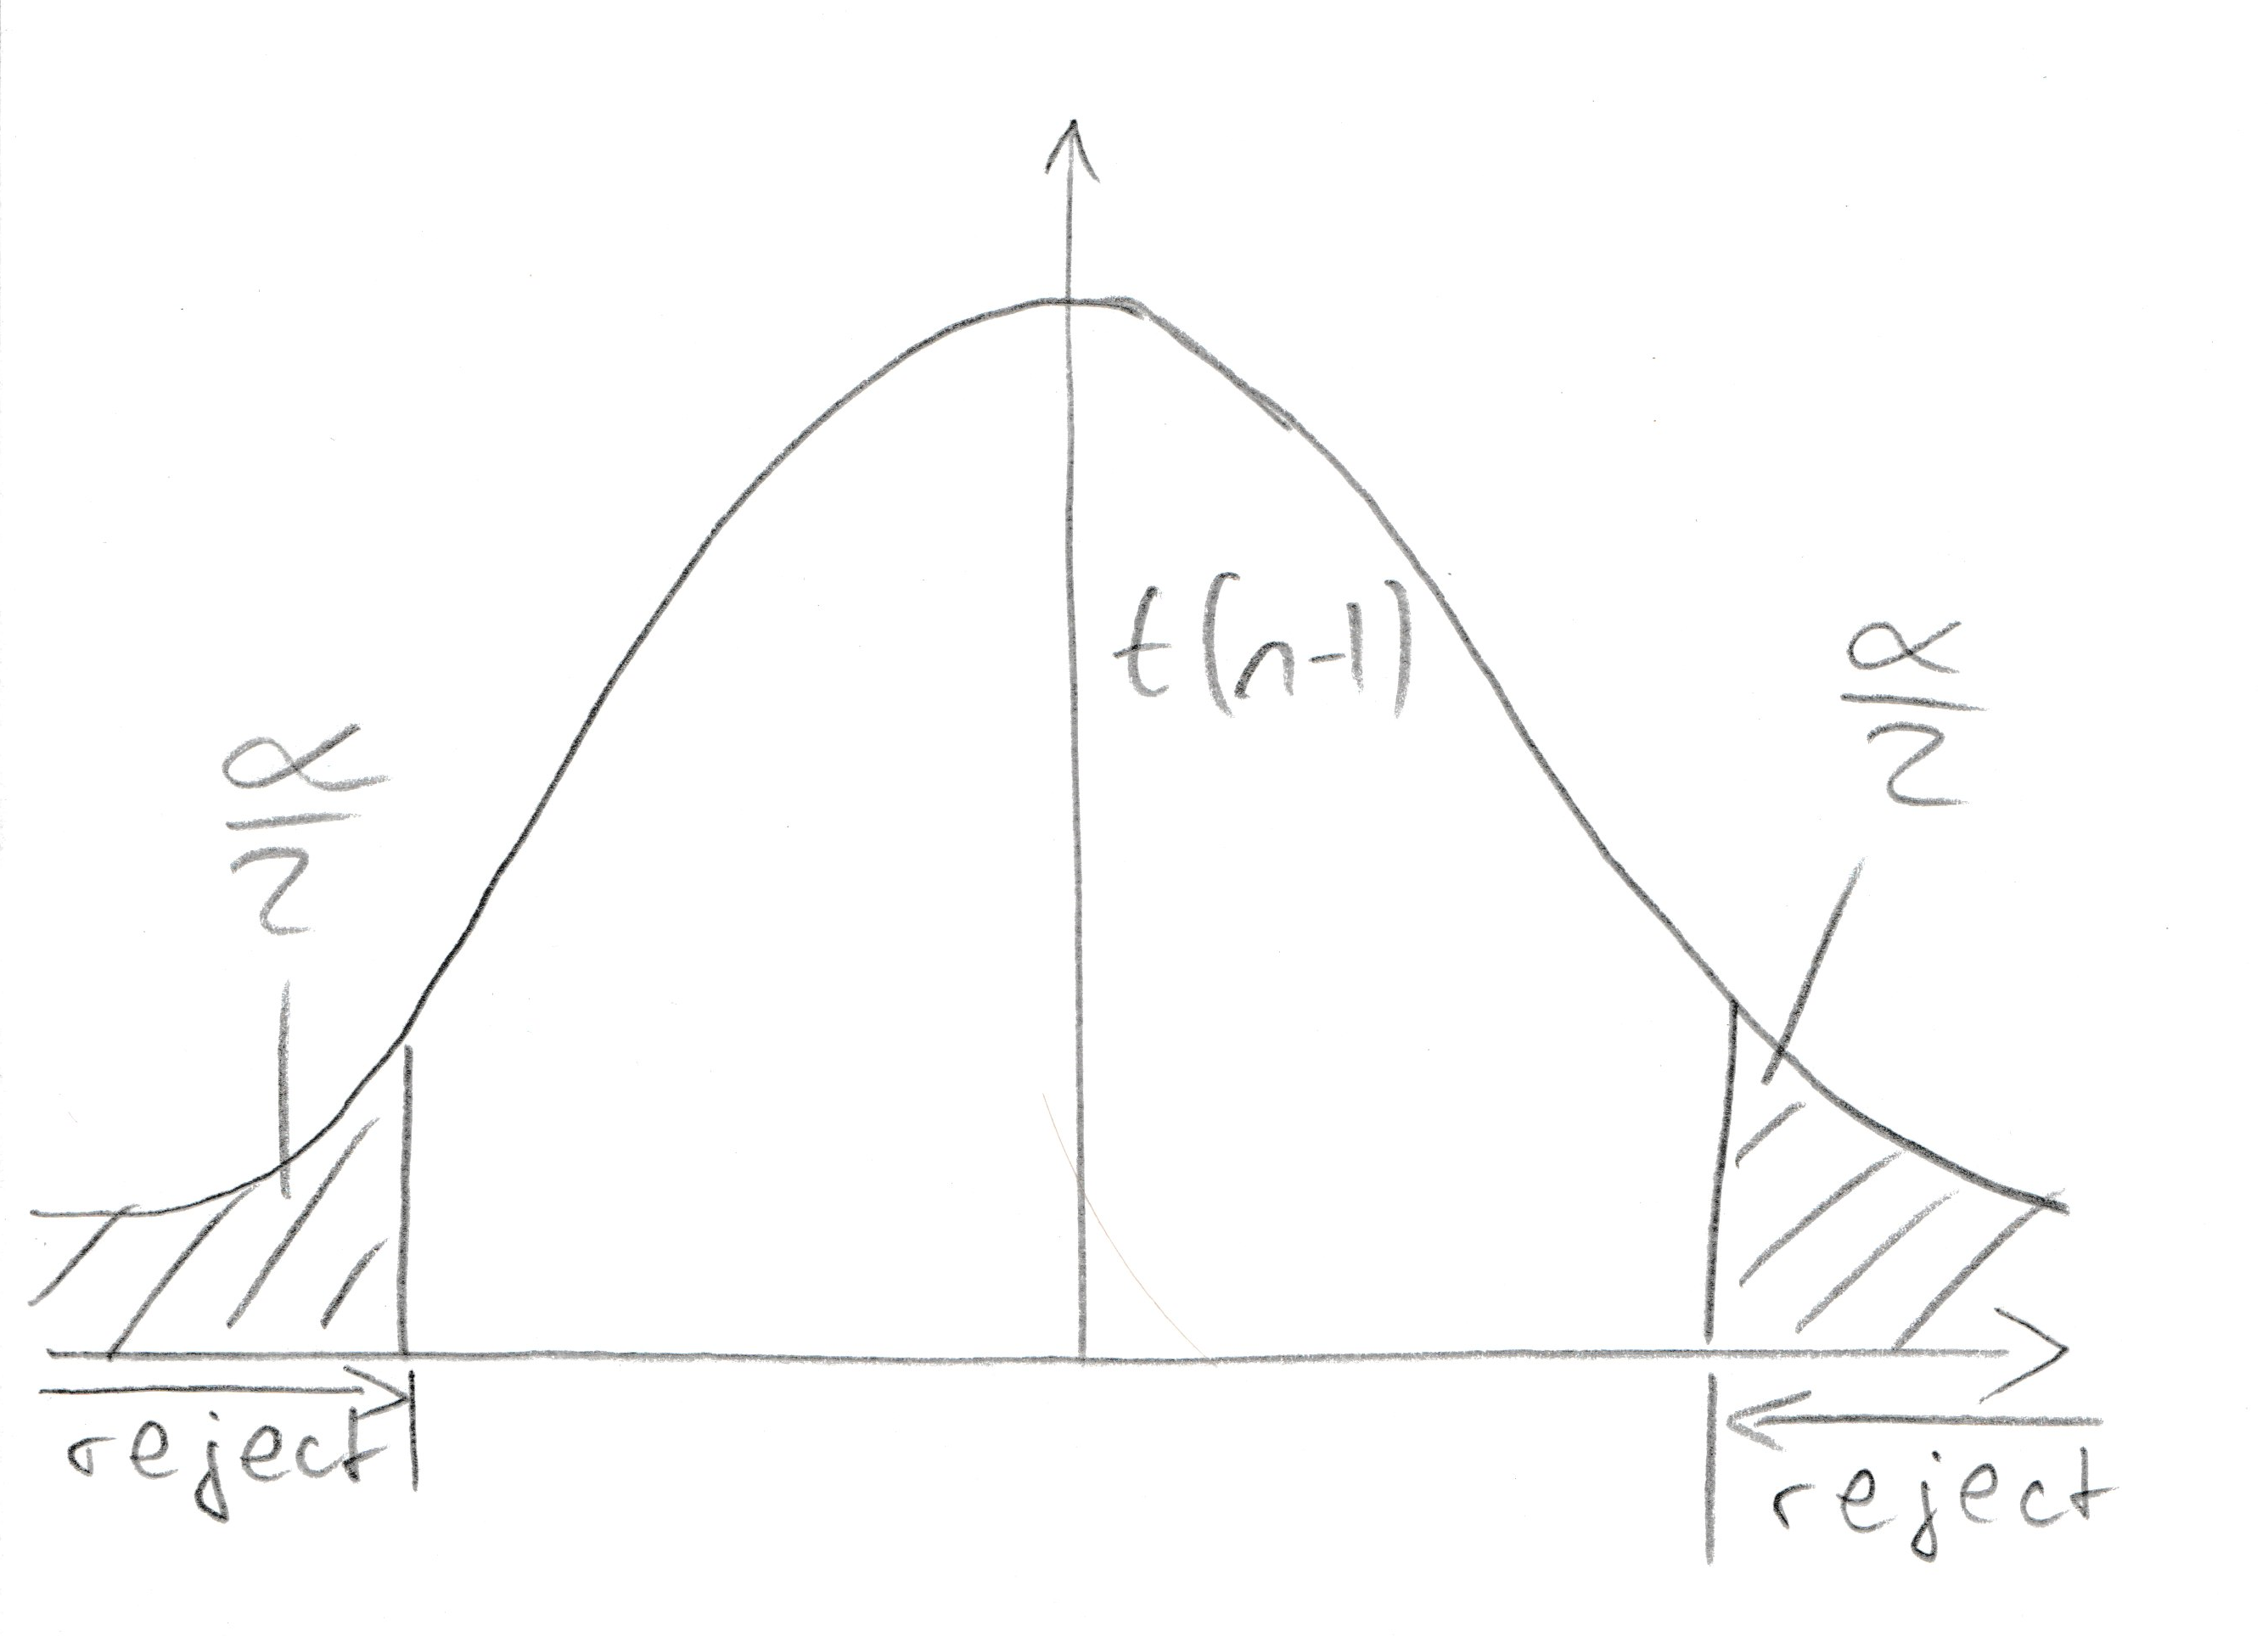 t(n-1)
α/2
α/2
reject
reject